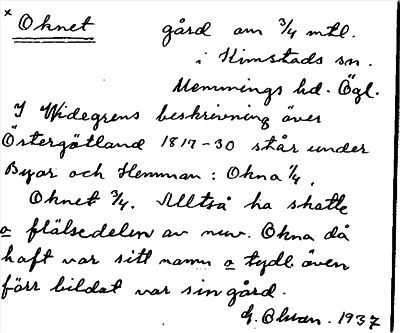 × Oknet gård om 3/4 mtl.
i Kimstads sn.
Memmings hd. Ögl.
I Widegrens beskrivning över
Östergötland 1817-30 står under
Byar och Hemman: Okna 1/4,
Oknet 3/4. Alltså ha skatte
o frälsedelen av nuv. Okna då
haft var sitt namn o tydl. även
förr bildat var sin gård.
G. Olson. 1937